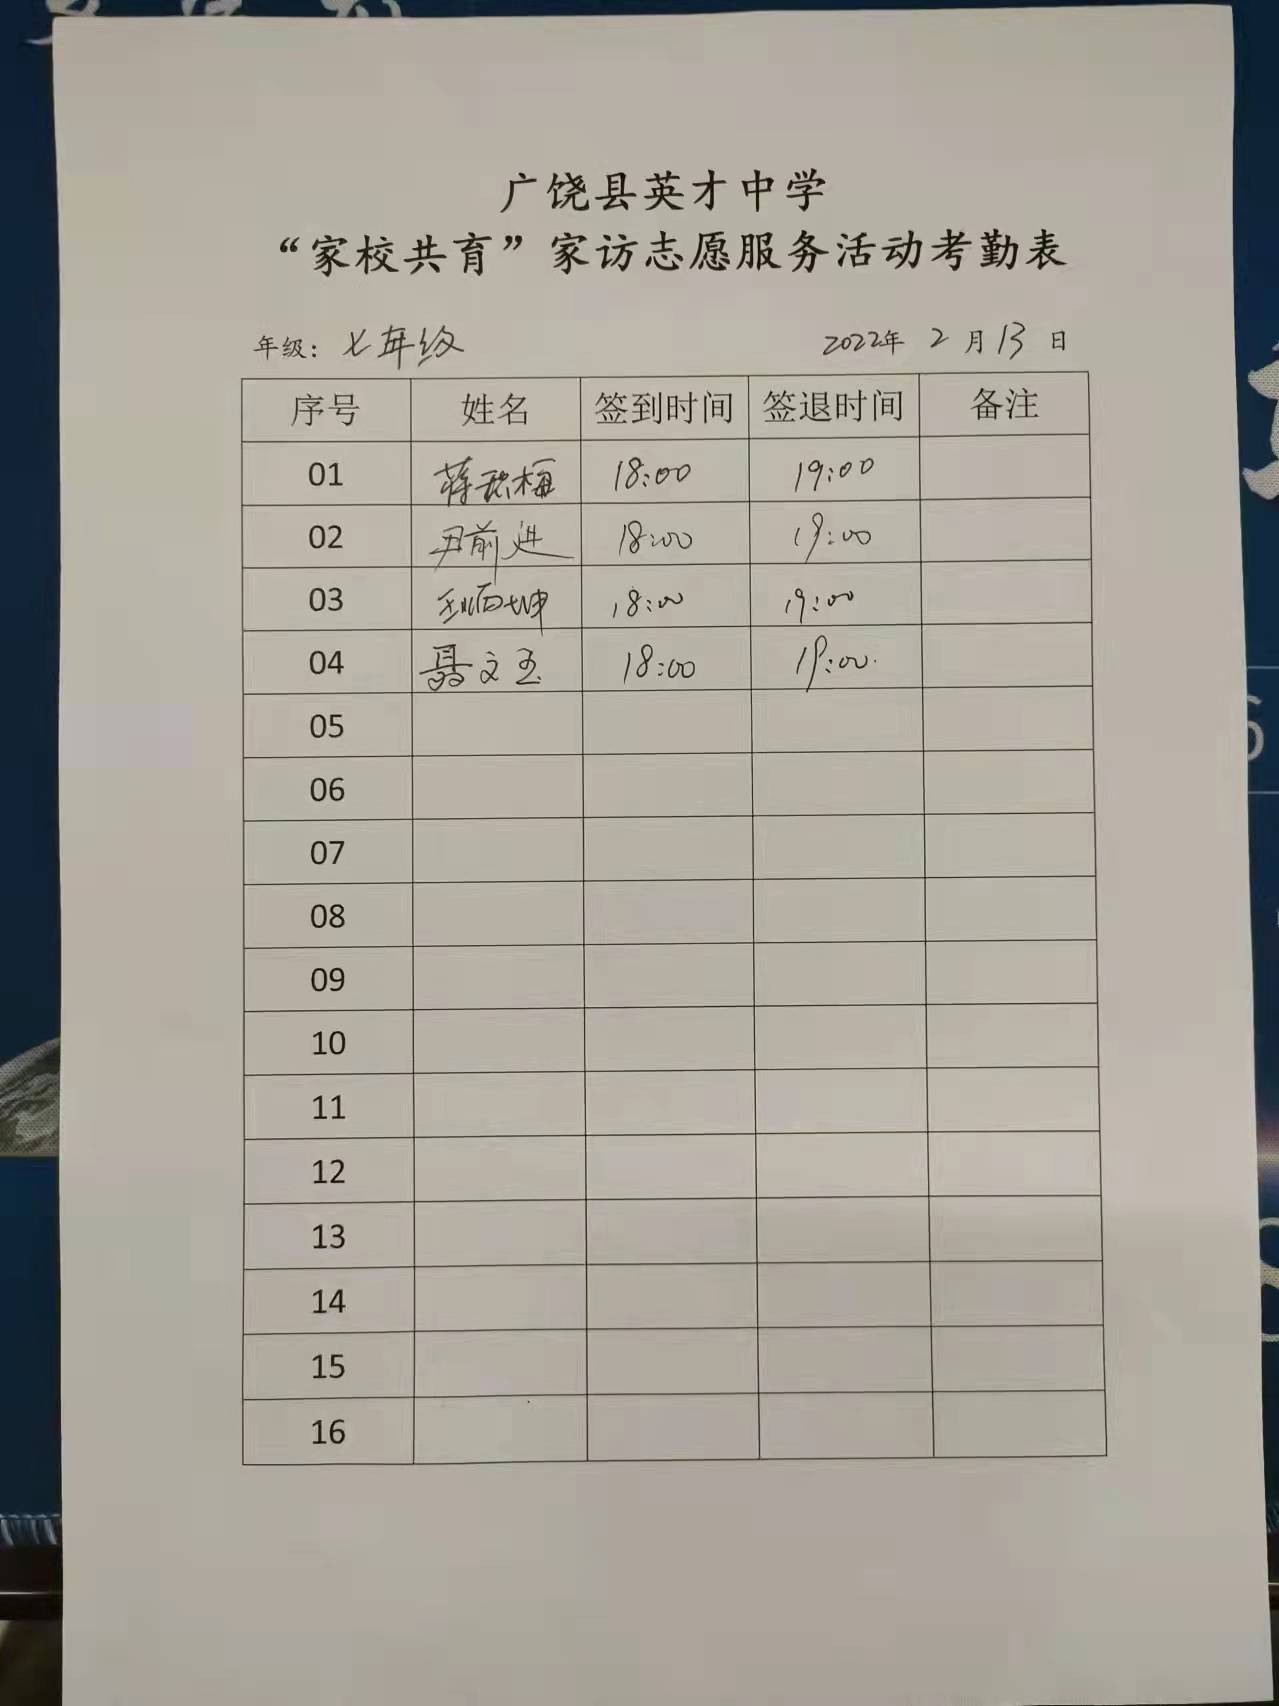 广饶县英才中学
“家校共育”家访志愿服务活动考勤表
年级：七年级 2022年 2 月 13 日
序号 姓名 签到时间 签退时间 备注
01 蒋 梅 18:00 19:00
02 尹前进 18:00 19:00
03 18:00 19:00
04 聂文玉 18:00 19:00
05
06
07
08
09
10
11
12
13
14
15
16